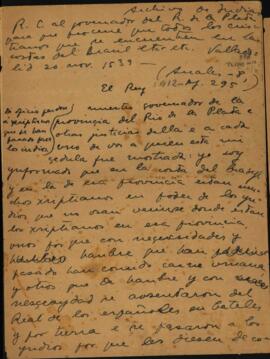 Archivo de Indias
R. C. al governador del R. de la Plata
para que procure que todos los cris
tianos que se encuentren en las
costas del Brasil etc etc. Vallado
lid 20 nov. 1539 —
(Anales - 8º
1912 - pg. 295
El Rey
nuestro governador de la
provincia del Rio de la Plata e
otras justicias della e a cada
uno de vos a quien esta mi
cedula fue mostrada: yo soy
ynformado que en la costa del Brasyl
y en la de esa provincia estan muchos
xriptianos en poder de los yn
dios que no osan venirse donde estan
los xriptianos en esa provincia
unos por que con necesidades y
hambre que han
pasado han comido carne umana
y otros que de hambre y con
se absentaron del
Real de los españoles en bateles
y por tierra e se pasaron a los
yndios por que les diesen de co